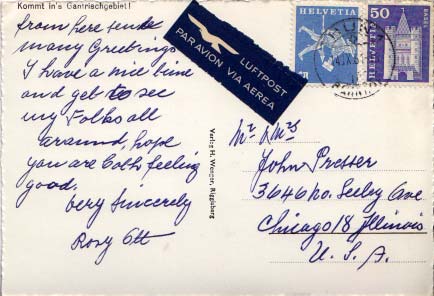 Kommt in's Gantrischgebiet!
from here sends
many Greetings
I have a nice time
and get to see
my Folks all
around, hope
you are both feeling
good.
Very Sincerely
Rosy Ott
LUFTPOST
PAR AVION VIA AEREA
HELVETIA
50
HELVETIA
BASEL
Verlag H. Wenger, Riggisberg
Mr & Mrs
John Presser
3646 No. Seeley Ave
Chicago 18 Illinois
U. S. A.